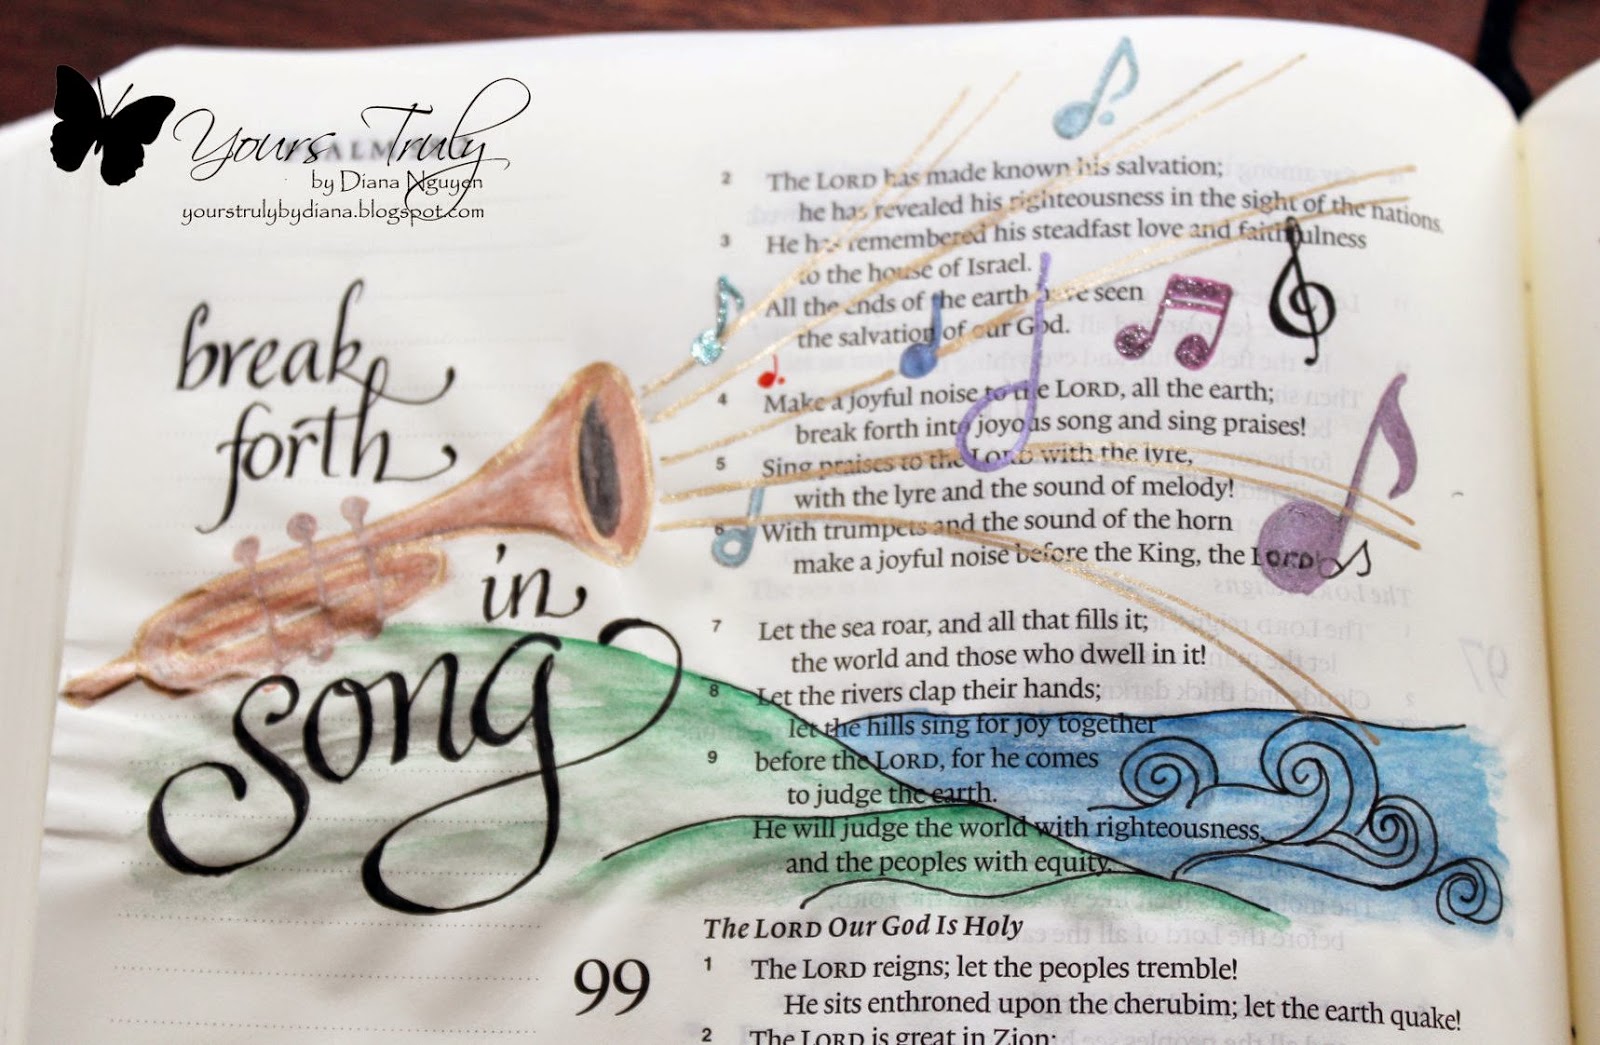 Yours Truly
by Diana Nguyen
yourstrulybydiana.blogspot.com
break
forth
in
song
2 The LORD has made known his salvation;
he has revealed his righteousness in the sight of the nations.
3 He has remembered his steadfast love and faithfulness
to the house of Israel.
All the ends of the earth have seen
the salvation of our God.
4 Make a joyful noise to the LORD, all the earth;
break forth into joyous song and sing praises!
5 Sing praises to the LORD with the lyre,
with the lyre and the sound of melody!
6 With trumpets and the sound of the horn
make a joyful noise before the King, the LORD!
7 Let the sea roar, and all that fills it;
the world and those who dwell in it!
8 Let the rivers clap their hands;
let the hills sing for joy together
9 before the LORD, for he comes
to judge the earth.
He will judge the world with righteousness,
and the peoples with equity.
The LORD Our God Is Holy
99
1 The LORD reigns; let the peoples tremble!
He sits enthroned upon the cherubim; let the earth quake!
2 The LORD is great in Zion;